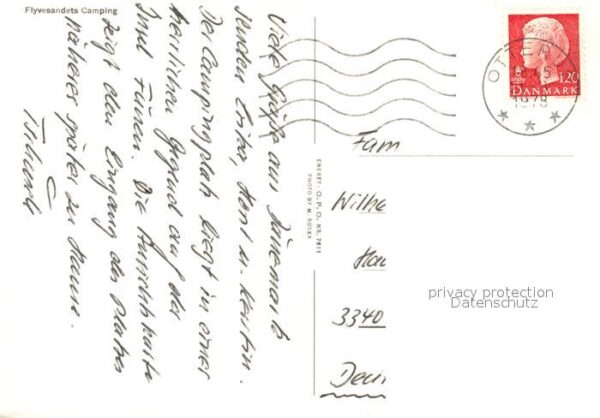 Flyvesandets Camping
Viele Grüße aus Dänemark
senden Erika, Horst u. Kerstin.
Der Campingplatz liegt in einer
herrlichen Gegend auf der
Insel Fünen. Die Ansichtskarte
zeigt den Eingang des Platzes
näheres später zu Hause.
Tschüß
ENERET: O. P. O. NR. 7811
PHOTO BY W. ROSER
OTTERUP
18.45
1978
120
DANMARK
Fam
Wilhe
Hau
3340
Deu
privacy protection
Datenschutz